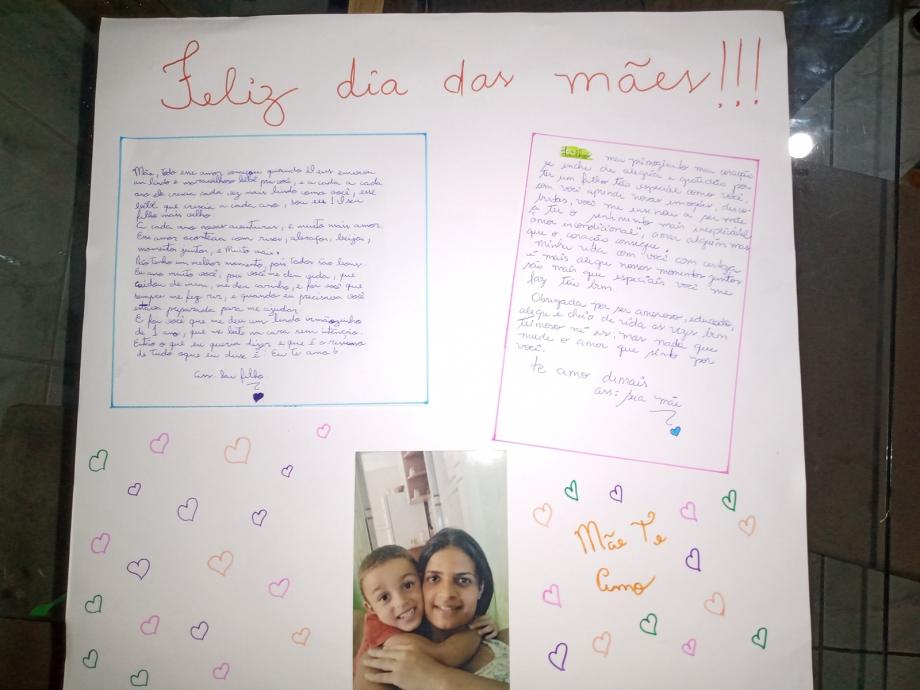 Feliz dia das mães!!!
Mãe, todo esse amor começou quando Deus enviou
um lindo e maravilhoso bebê pra você, e a cada a cada
ano ele crescia cada vez mais lindo como você, esse
bebê que crescia a cada ano, sou eu! Seu
filho mais velho.
A cada ano novas aventuras, e muito mais amor.
Esse amor acontecia com risos, abraços, beijos,
momentos juntos, e Muito mais.
Não tenho um melhor momento, pois Todos são bons.
Eu amo muito você, pois você me deu vida, que
cuidou de mim, me deu carinho, e foi você que
sempre me fez rir, e quando eu precisava você
estava preparada para me ajudar
E foi você que me deu um lindo irmãozinho
de 1 ano, que me bate na cara sem intenção.
Então o que eu queria dizer e que é o resumo
de tudo oque eu disse é: Eu te amo
ass: Seu filho
Filho meu meu coração
se enche de alegria e gratidão por
ter um filho tão especial como você.
com você aprendi novas emoções, desco-
bertas, você me ensinou a ser mãe
a ter o sentimento mais inexplicável
"amor incondicional", amar alguém mais
que o coração consegue.
Minha vida com você com certeza
é mais alegre nossos momentos juntos
são mais que especiais você me
faz tão bem
Obrigada por ser amoroso, educado,
alegre e cheio de vida as vezes bem
teimoso né rs. mas nada que
mude o amor que sinto por
você.
te amo demais
ass: sua mãe
Mãe Te
Amo